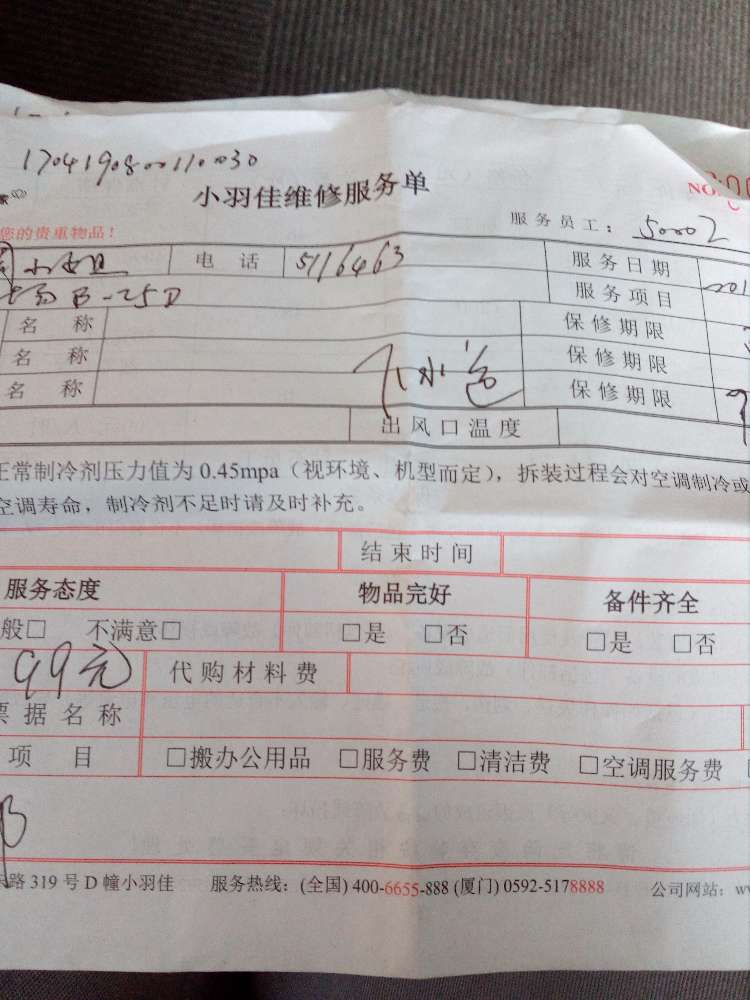 1704190800110030
小羽佳维修服务单
NO.
您的贵重物品！
服务员工：50002
小姐 电话 5116463 服务日期
B-25D 服务项目 201
名称 保修期限
名称 保修期限
名称 保修期限
出风口温度
正常制冷剂压力值为 0.45mpa（视环境、机型而定），拆装过程会对空调制冷或
空调寿命，制冷剂不足时请及时补充。
结束时间
服务态度 物品完好 备件齐全
般□ 不满意□ □是 □否 □是 □否
99元 代购材料费
票据名称
项目 □搬办公用品 □服务费 □清洁费 □空调服务费
路 319 号 D 幢小羽佳 服务热线：(全国) 400-6655-888 (厦门) 0592-5178888 公司网站：w